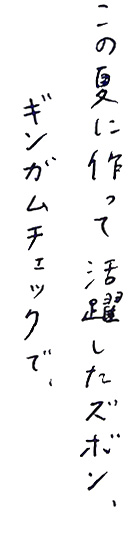 この夏に作って活躍したズボン、
ギンガムチェックで、